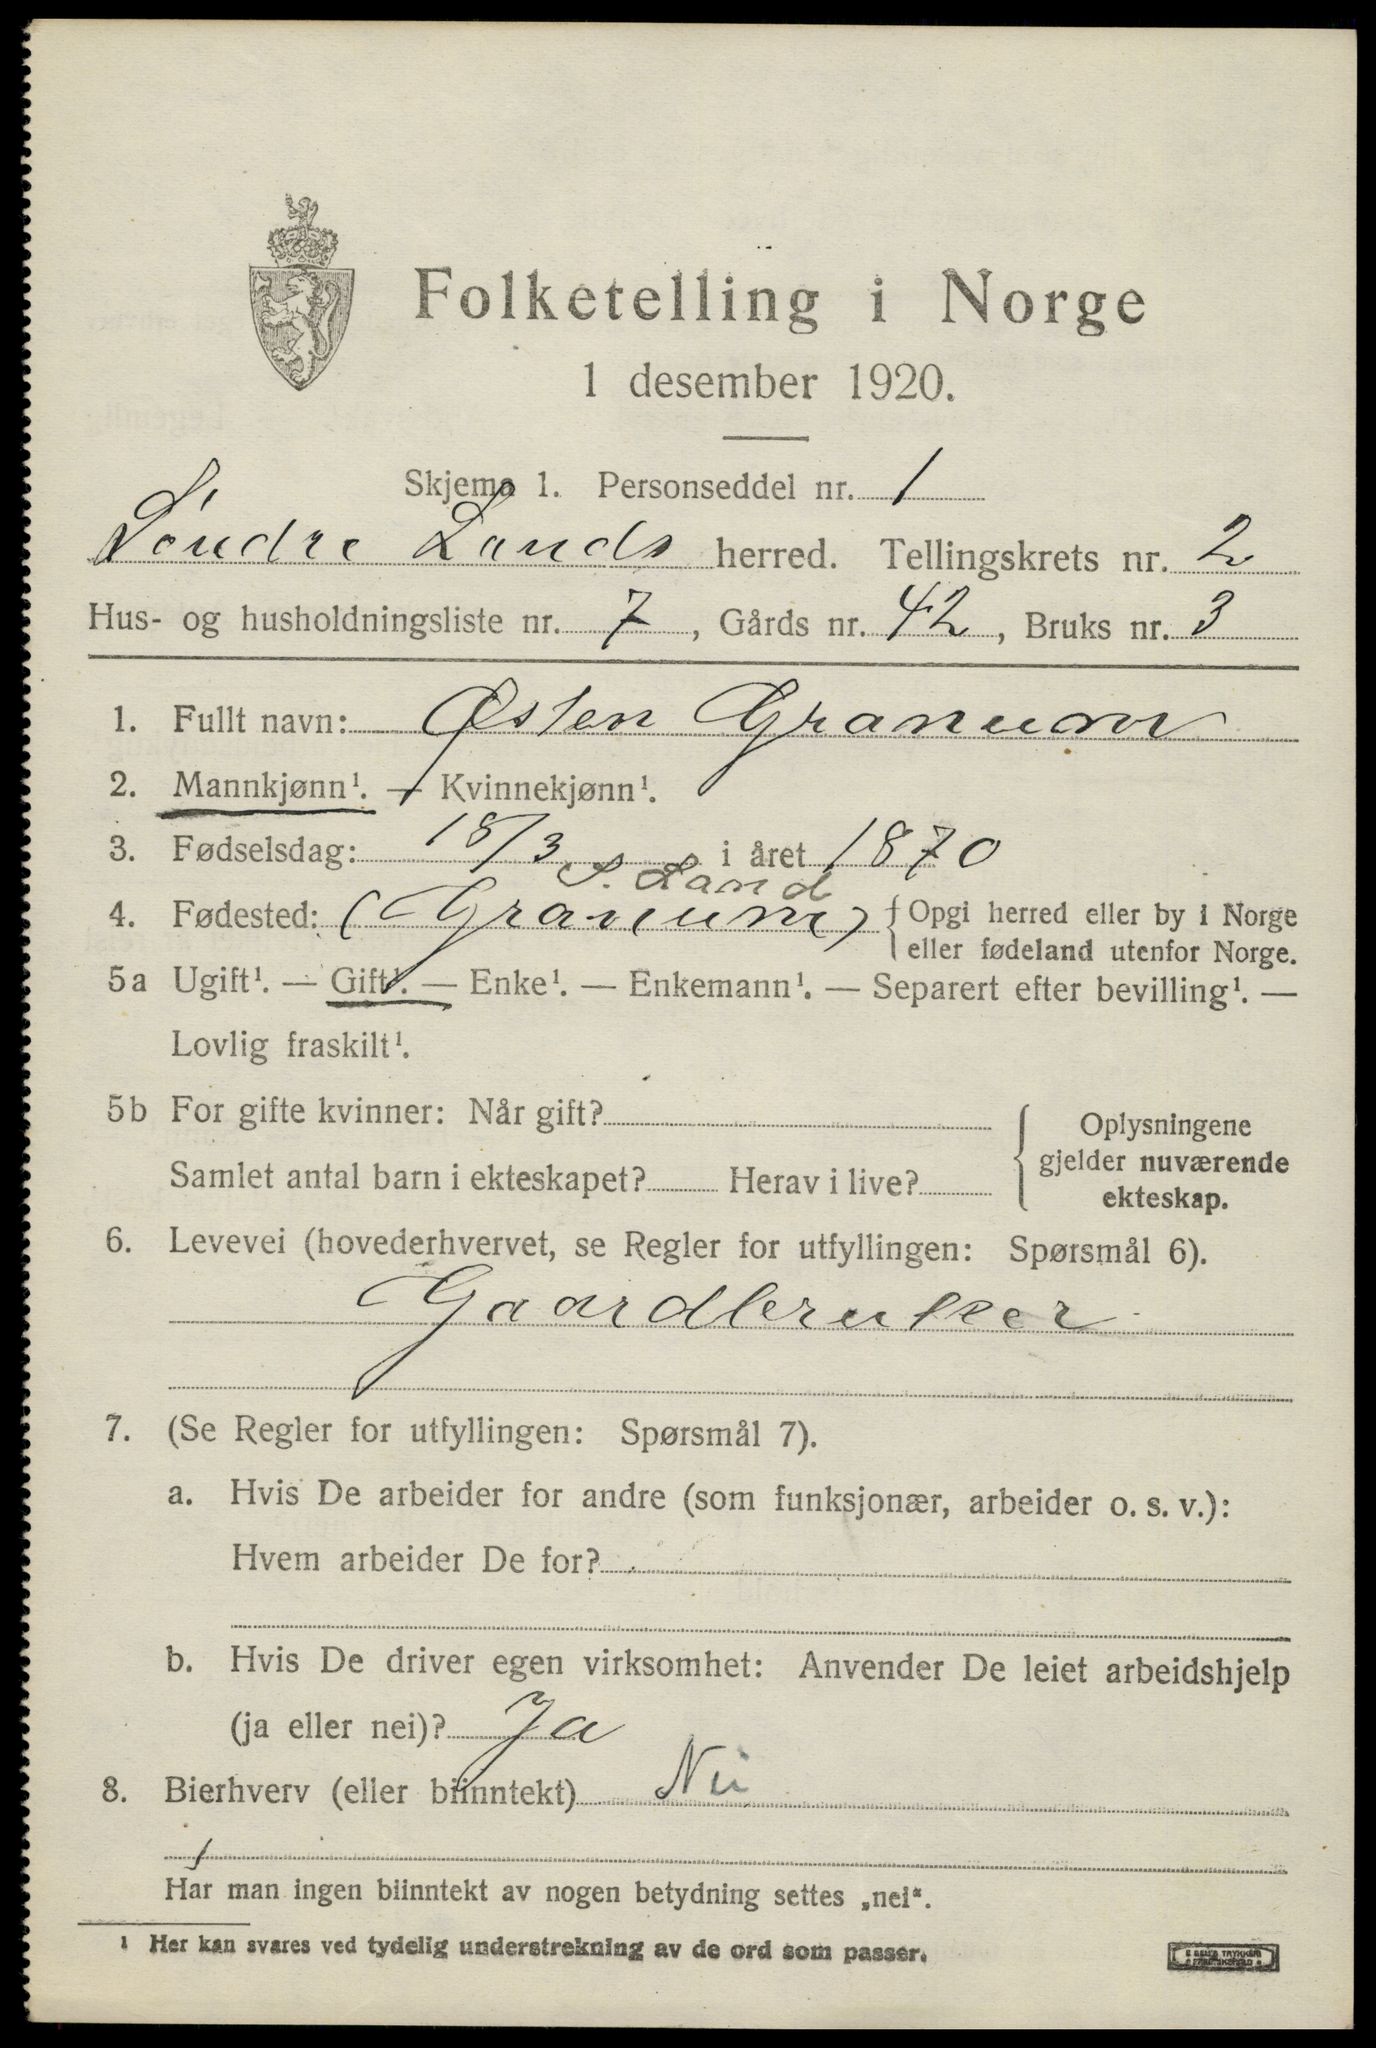 Folketelling i Norge
1 desember 1920.
Skjema 1. Personseddel nr. 1
Søndre Lands herred. Tellingskrets nr. 2
Hus- og husholdningsliste nr. 7, Gårds nr. 42, Bruks nr. 3
1. Fullt navn: Østen Granum
2. Mannkjønn¹. — Kvinnekjønn¹.
3. Fødselsdag: 18/3 i året 1870
S. Land
4. Fødested: (Granum) { Opgi herred eller by i Norge
eller fødeland utenfor Norge.
5a Ugift¹. — Gift¹. — Enke¹. — Enkemann¹. — Separert efter bevilling¹. —
Lovlig fraskilt¹.
5b For gifte kvinner: Når gift?
Samlet antal barn i ekteskapet? Herav i live?
{ Oplysningene
gjelder nuværende
ekteskap.
6. Levevei (hovederhvervet, se Regler for utfyllingen: Spørsmål 6).
Gaardbruker
7. (Se Regler for utfyllingen: Spørsmål 7).
a. Hvis De arbeider for andre (som funksjonær, arbeider o. s. v.):
Hvem arbeider De for?
b. Hvis De driver egen virksomhet: Anvender De leiet arbeidshjelp
(ja eller nei)? Ja
8. Bierhverv (eller biinntekt) Nei
Har man ingen biinntekt av nogen betydning settes „nei“.
¹ Her kan svares ved tydelig understrekning av de ord som passer.